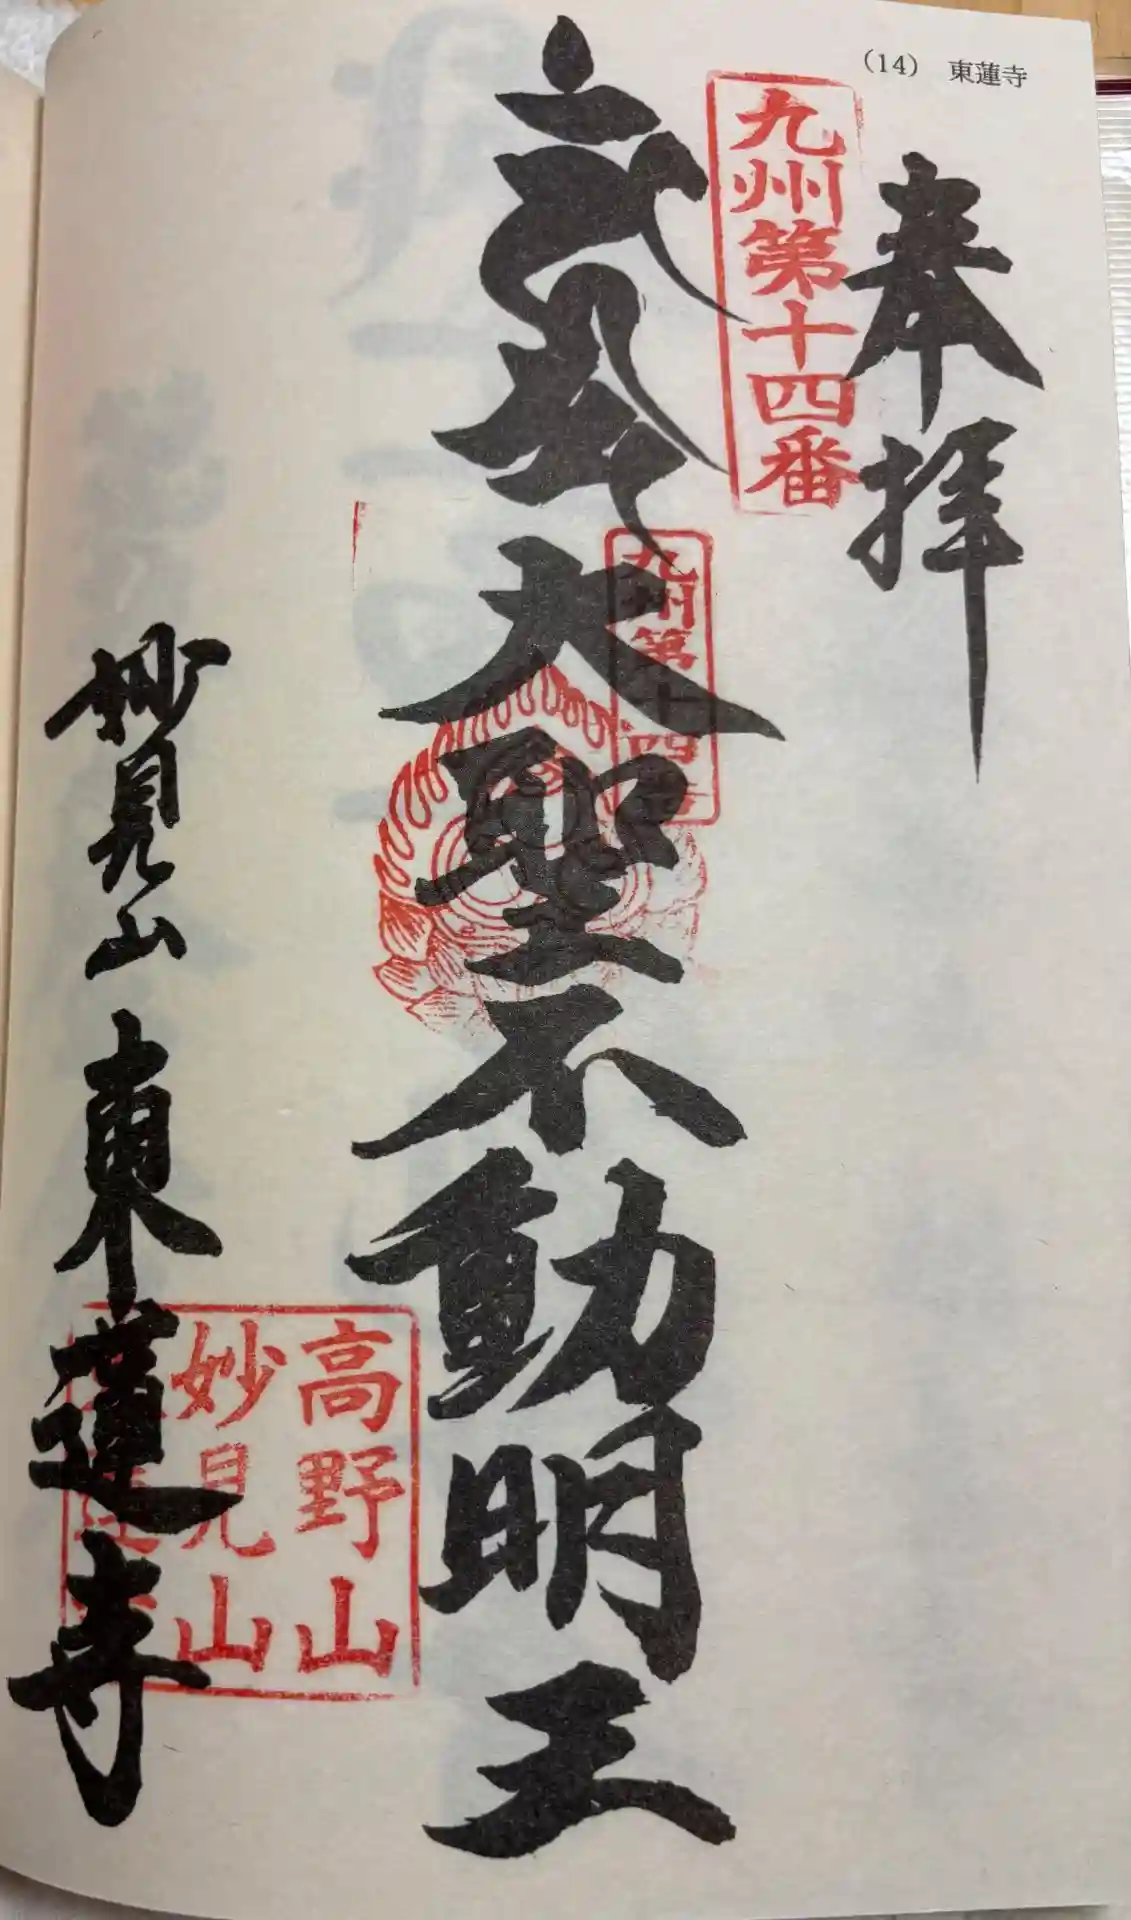 (14) 東蓮寺
奉拝
九州第十四番
大聖不動明王
九州第十四番
妙見山 東蓮寺
高野山
妙見山